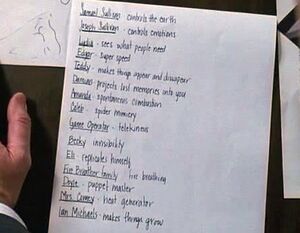 Samuel Sullivan - controls the earth
Joseph Sullivan - controls emotions
Lydia - sees what people need
Edgar - super speed
Teddy - makes things appear and disappear
Damian - projects lost memories onto you
Amanda - spontaneous combustion
Caleb - spider mimicry
Game Operator - telekinesis
Becky - invisibility
Eli - replicates himself
Fire Breather family - fire breathing
Doyle - puppet master
Mrs. - heat generator
Ian Michaels - makes things grow